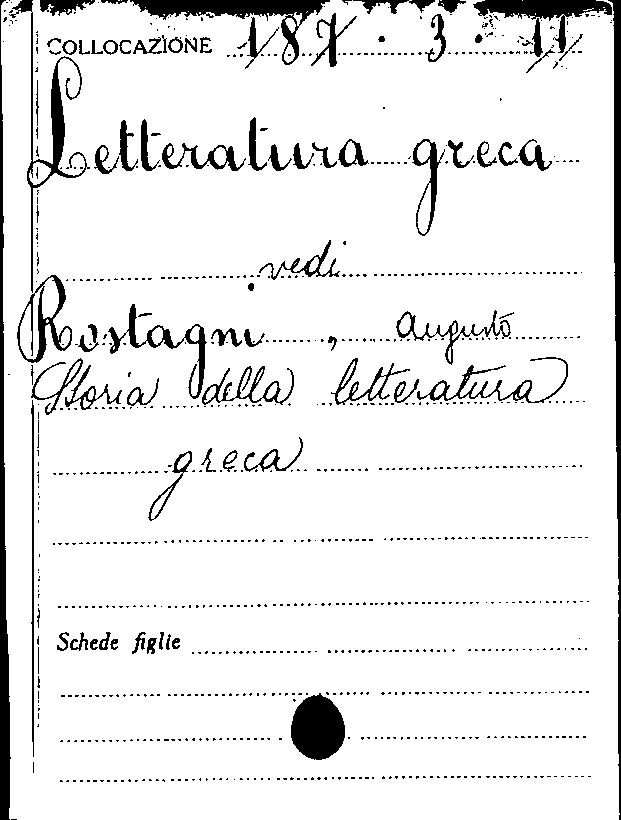 COLLOCAZIONE 187 . 3 . 11
Letteratura greca
vedi
Rostagni, Augusto
Storia della letteratura
greca
Schede figlie